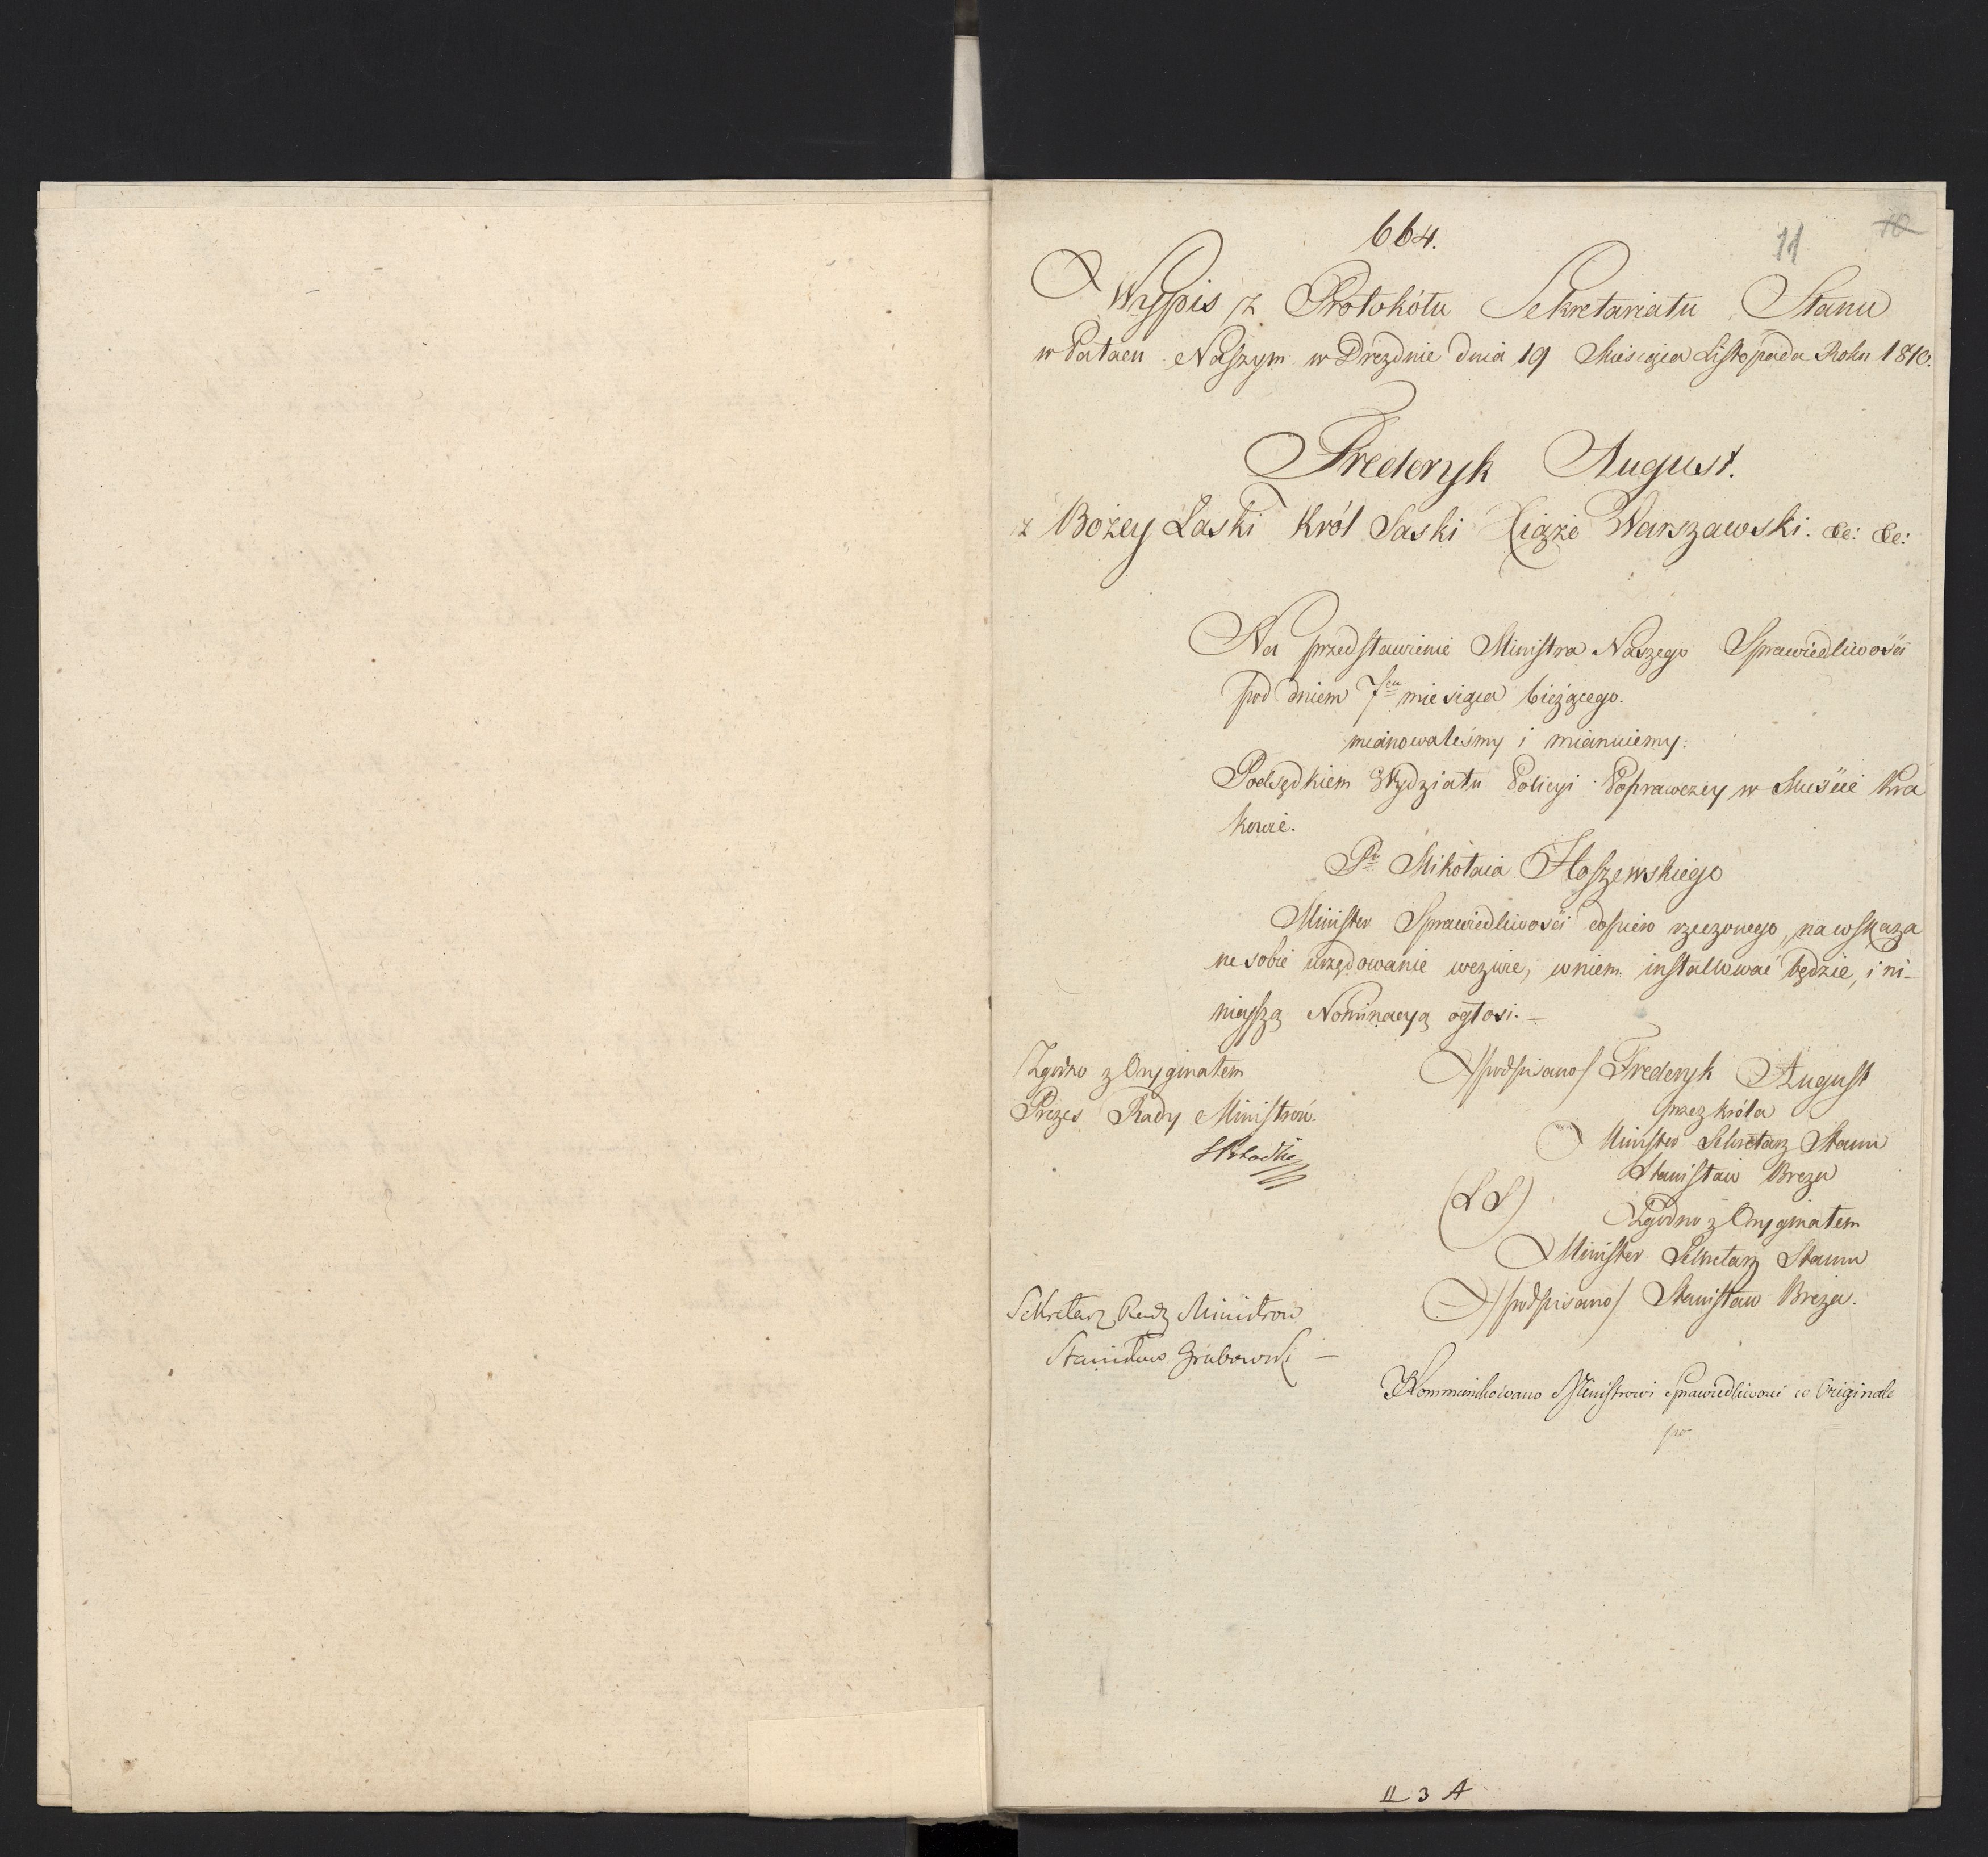 664.
11 10
Wypis z Protokółu Sekretariatu Stanu
w Pałacu Naszym w Dreznie dnia 19 Miesiąca Listopada Roku 1810.
Frederyk August.
z Bożey Łaski Król Saski Xiąże Warszawski. &c: &c:
Na przedstawienie Ministra Naszego Sprawiedliwości
pod dniem 7 miesiąca bieżącego.
mianowaliśmy i mianuiemy:
Podsędkiem Wydziału Policyi Poprawczey w Mieście Kra
kowie.
Pa Mikołaia Hoszewskiego
Minister Sprawiedliwości dopiero rzeczonego, na wskaza
ne sobie urzędowanie wezwie, w niem installować będzie, i ni-
nieyszą Nominacyą ogłosi. –
Zgodno z Oryginałem
Prezes Rady Ministrów.
/podpisano/ Frederyk August
przez Króla
Minister Sekretarz Stanu
Stanisław Breza
(L S)
Zgodno z Oryginałem
Minister Sekretarz Stanu
/podpisano/ Stanisław Breza.
Sekretarz Rady Ministrow
Stanisław Grabowski –
Kommunikowano Ministrowi Sprawiedliwości w Originale
II 3 A